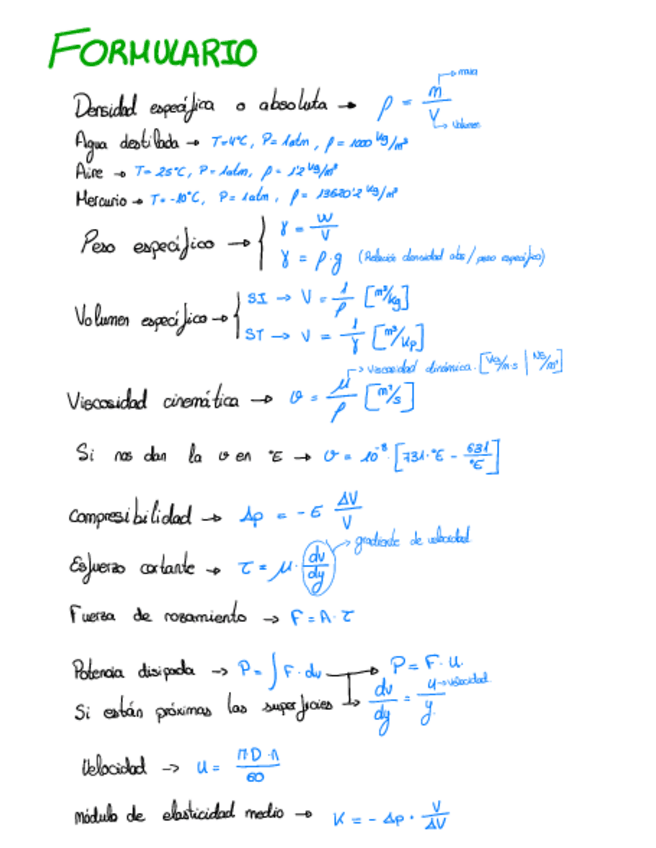 FORMULARIO
Densidad específica o absoluta → ρ = m/V → masa → Volumen
Agua destilada → T=4°C, P=1atm, ρ=1000 kg/m³
Aire → T=25°C, P=1atm, ρ=1'2 kg/m³
Mercurio → T=-10°C, P=1atm, ρ=13620'2 kg/m³
Peso específico → { γ = W/V
γ = ρ·g (Relación densidad abs/peso específico)
Volumen específico → { SI → V = 1/ρ [m³/kg]
ST → V = 1/γ [m³/kp]
→ viscosidad dinámica. [kg/m·s | NS/m²]
Viscosidad cinemática → υ = μ/ρ [m²/s]
Si nos dan la υ en °E → υ = 10⁻⁸ [731·°E - 631/°E]
Compresibilidad → Δp = -E ΔV/V
Esfuerzo cortante → τ = μ · dv/dy → gradiente de velocidad
Fuerza de rozamiento → F=A·τ
Potencia disipada → P = ∫F·dv → P = F·u.
Si están próximas las superficies → dv/dy = u/y → velocidad
Velocidad → u = π·D·n/60
Módulo de elasticidad medio → K = -Δp · V/ΔV